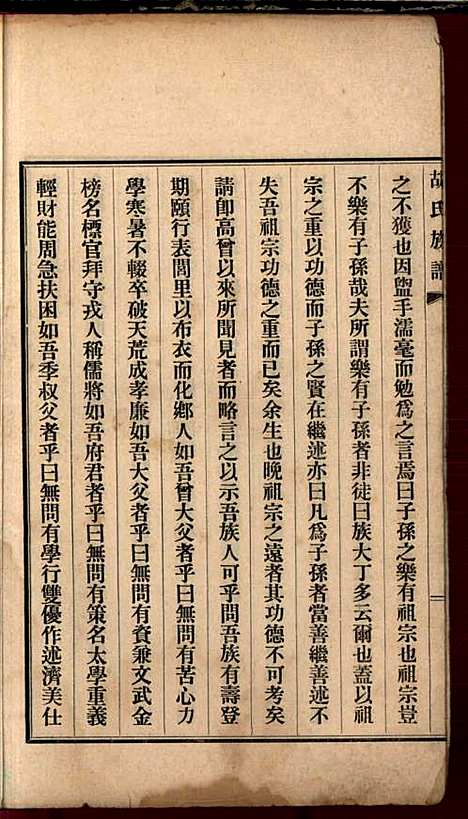 胡氏族譜
之不獲也因盥手濡毫而勉爲之言焉曰子孫之樂有祖宗也豈
不樂有子孫哉夫所謂樂有子孫者非徒曰族大丁多云爾也蓋以祖
宗之重以功德而子孫之賢在繼述亦曰凡爲子孫者當善繼善述不
失吾祖宗功德之重而已矣余生也晚祖宗之遠者其功德不可考矣
請卽高曾以來所聞見者而略言之以示吾族人可乎問吾族有壽登
期頤行表閭里以布衣而化鄉人如吾曾大父者乎曰無問有苦心力
學寒暑不輟卒破天荒成孝廉如吾大父者乎曰無問有資兼文武金
榜名標官拜守戎人稱儒將如吾府君者乎曰無問有策名太學重義
輕財能周急扶困如吾季叔父者乎曰無問有學行雙優作述濟美仕